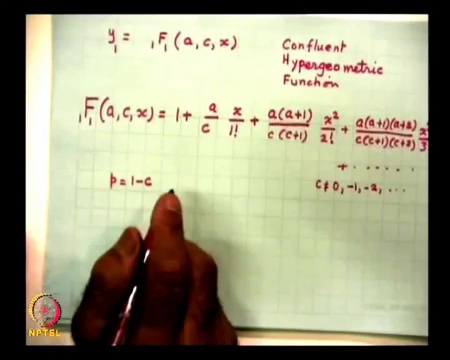 y₁ = ₁F₁(a, c, x)
Confluent
Hypergeometric
Function
₁F₁(a,c,x) = 1 + a/c x/1! + a(a+1)/c(c+1) x²/2! + a(a+1)(a+2)/c(c+1)(c+2) x³/3!
+ ......
p = 1-c
c ≠ 0, -1, -2, ...
NPTEL